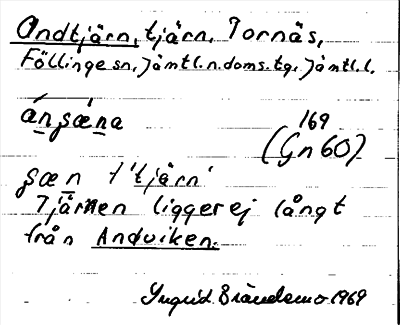 Andtjärn, tjärn, Tornäs,
Föllinge sn, Jämtl. n. doms. tg, Jämtl. l.
ánsæ̀na
169
(Gn 60)
sæn f 'tjärn'
Tjärnen ligger ej långt
från Andviken.
Ingrid Brändemo 1969